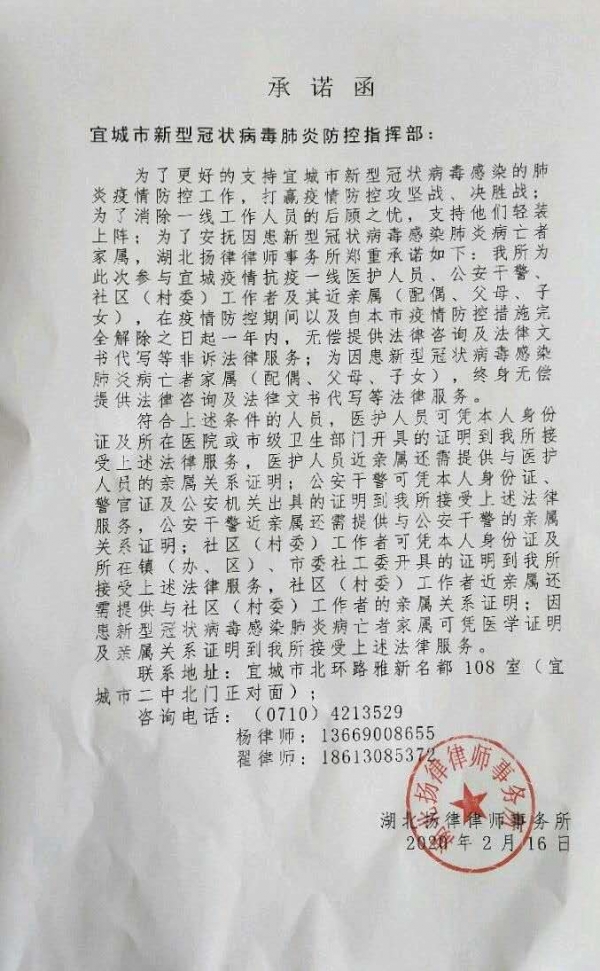 承诺函
宜城市新型冠状病毒肺炎防控指挥部：
为了更好的支持宜城市新型冠状病毒感染的肺
炎疫情防控工作，打赢疫情防控攻坚战、决胜战；
为了消除一线工作人员的后顾之忧，支持他们轻装
上阵；为了安抚因患新型冠状病毒感染肺炎病亡者
家属，湖北扬律律师事务所郑重承诺如下：我所为
此次参与宜城疫情抗疫一线医护人员、公安干警、
社区（村委）工作者及其近亲属（配偶、父母、子
女），在疫情防控期间以及自本市疫情防控措施完
全解除之日起一年内，无偿提供法律咨询及法律文
书代写等非诉法律服务；为因患新型冠状病毒感染
肺炎病亡者家属（配偶、父母、子女），终身无偿
提供法律咨询及法律文书代写等法律服务。
符合上述条件的人员，医护人员可凭本人身份
证及所在医院或市级卫生部门开具的证明到我所接
受上述法律服务，医护人员近亲属还需提供与医护
人员的亲属关系证明；公安干警可凭本人身份证、
警官证及公安机关出具的证明到我所接受上述法律
服务，公安干警近亲属还需提供与公安干警的亲属
关系证明；社区（村委）工作者可凭本人身份证及
所在镇（办、区）、市委社工委开具的证明到我所
接受上述法律服务，社区（村委）工作者近亲属还
需提供与社区（村委）工作者的亲属关系证明；因
患新型冠状病毒感染肺炎病亡者家属可凭医学证明
及亲属关系证明到我所接受上述法律服务。
联系地址：宜城市北环路雅新名都 108 室（宜
城市二中北门正对面）；
咨询电话：（0710）4213529
杨律师：13669008655
翟律师：18613085372
湖北扬律律师事务所
2020 年 2 月 16 日
湖北扬律律师事务所